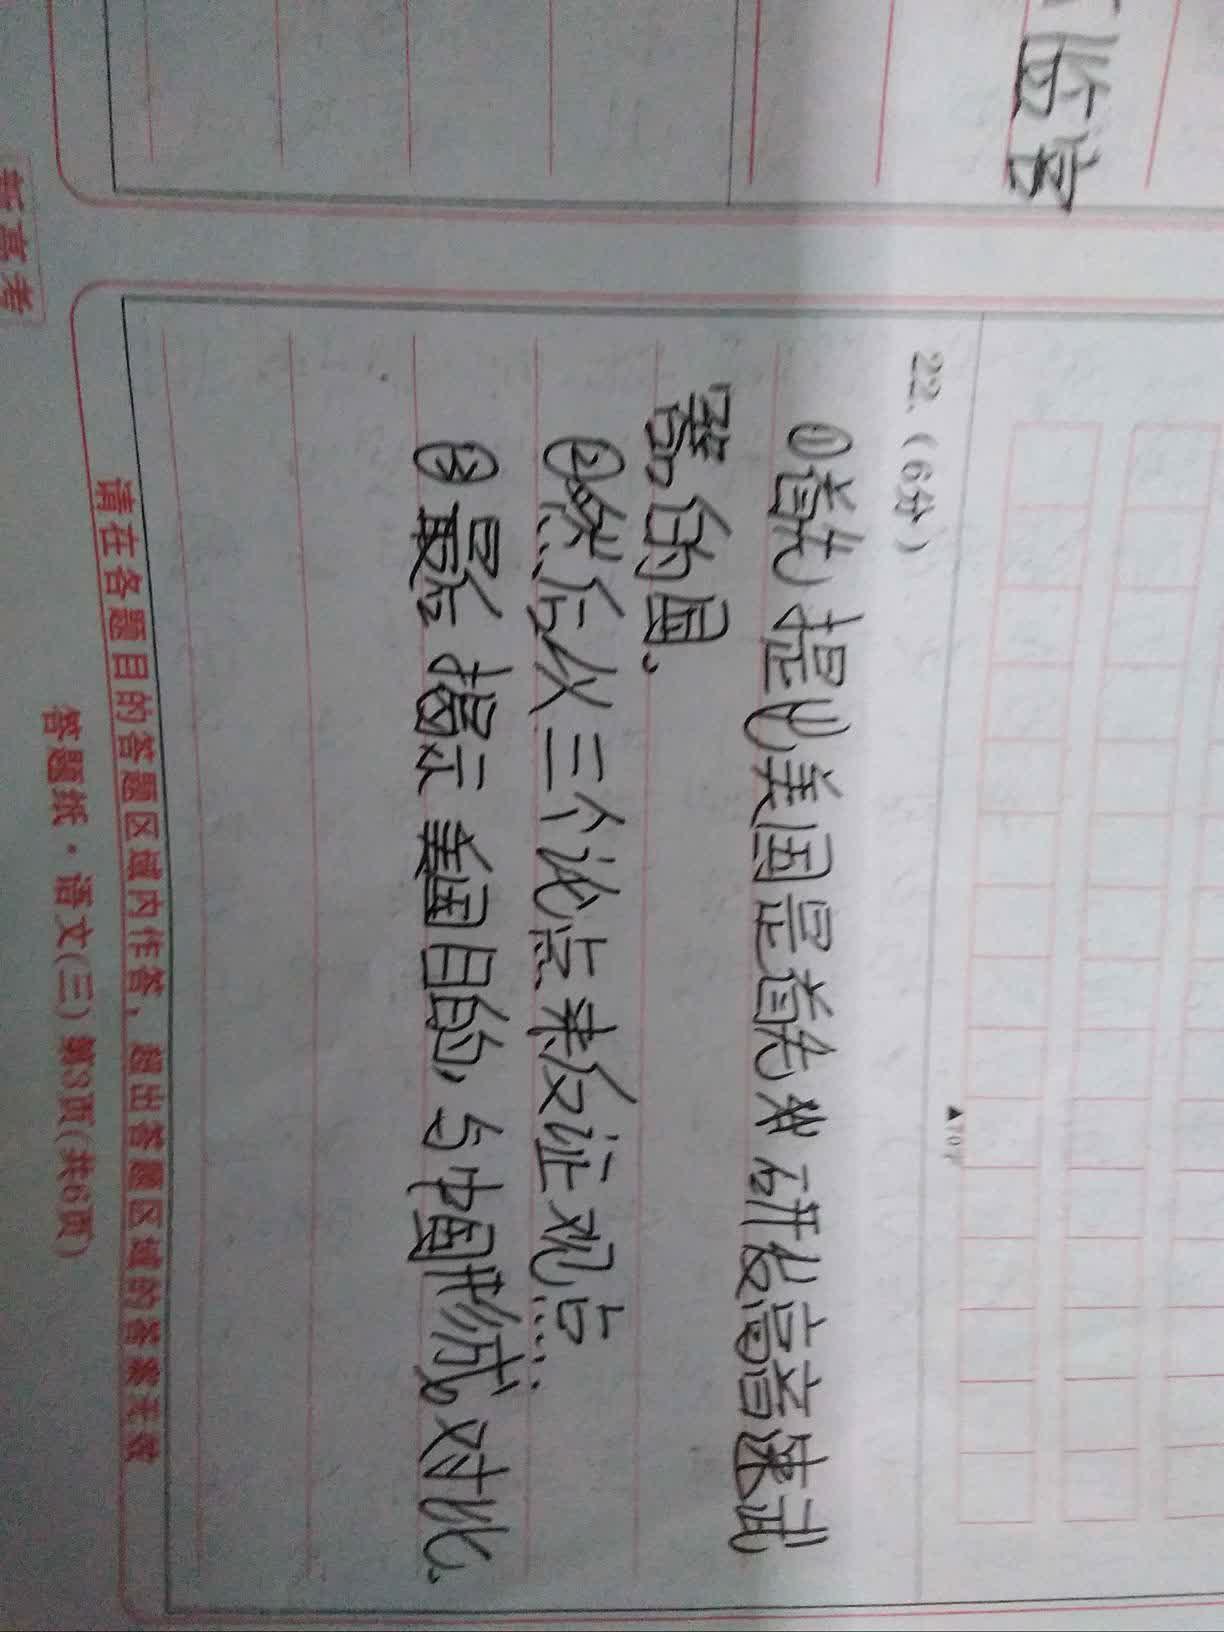 临官
▲707
22.(6分)
①首先提出美国是首先来研发高音速武
器的国。
②然后从三个论点来反证观点
③最后揭示美国目的，与中国形成对比.
请在各题目的答题区域内作答，超出答题区域的答案无效
答题纸·语文(三) 第3页(共6页)
新高考